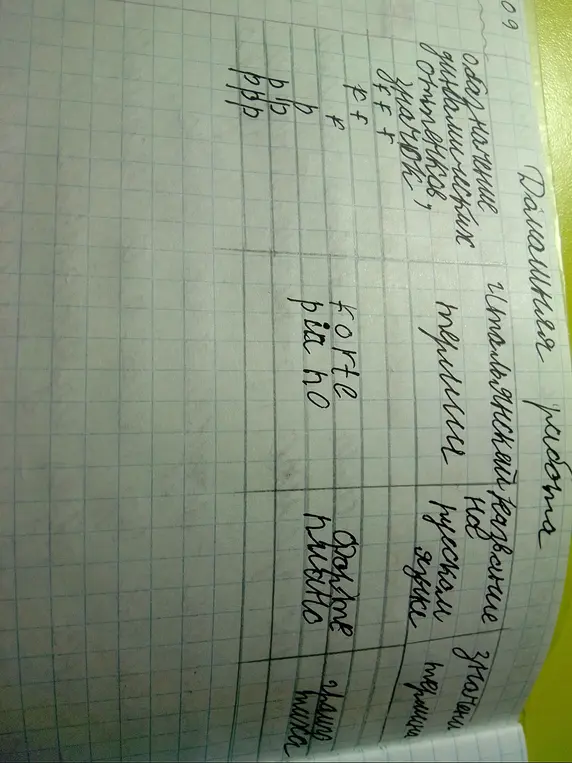 09
Домашняя работа
обозначение динамических оттенков, значок
Итальянский термин
название на русском языке
значени термина
f f f
f f
f forte форте громко
p piano пиано тихо
p p
p p p